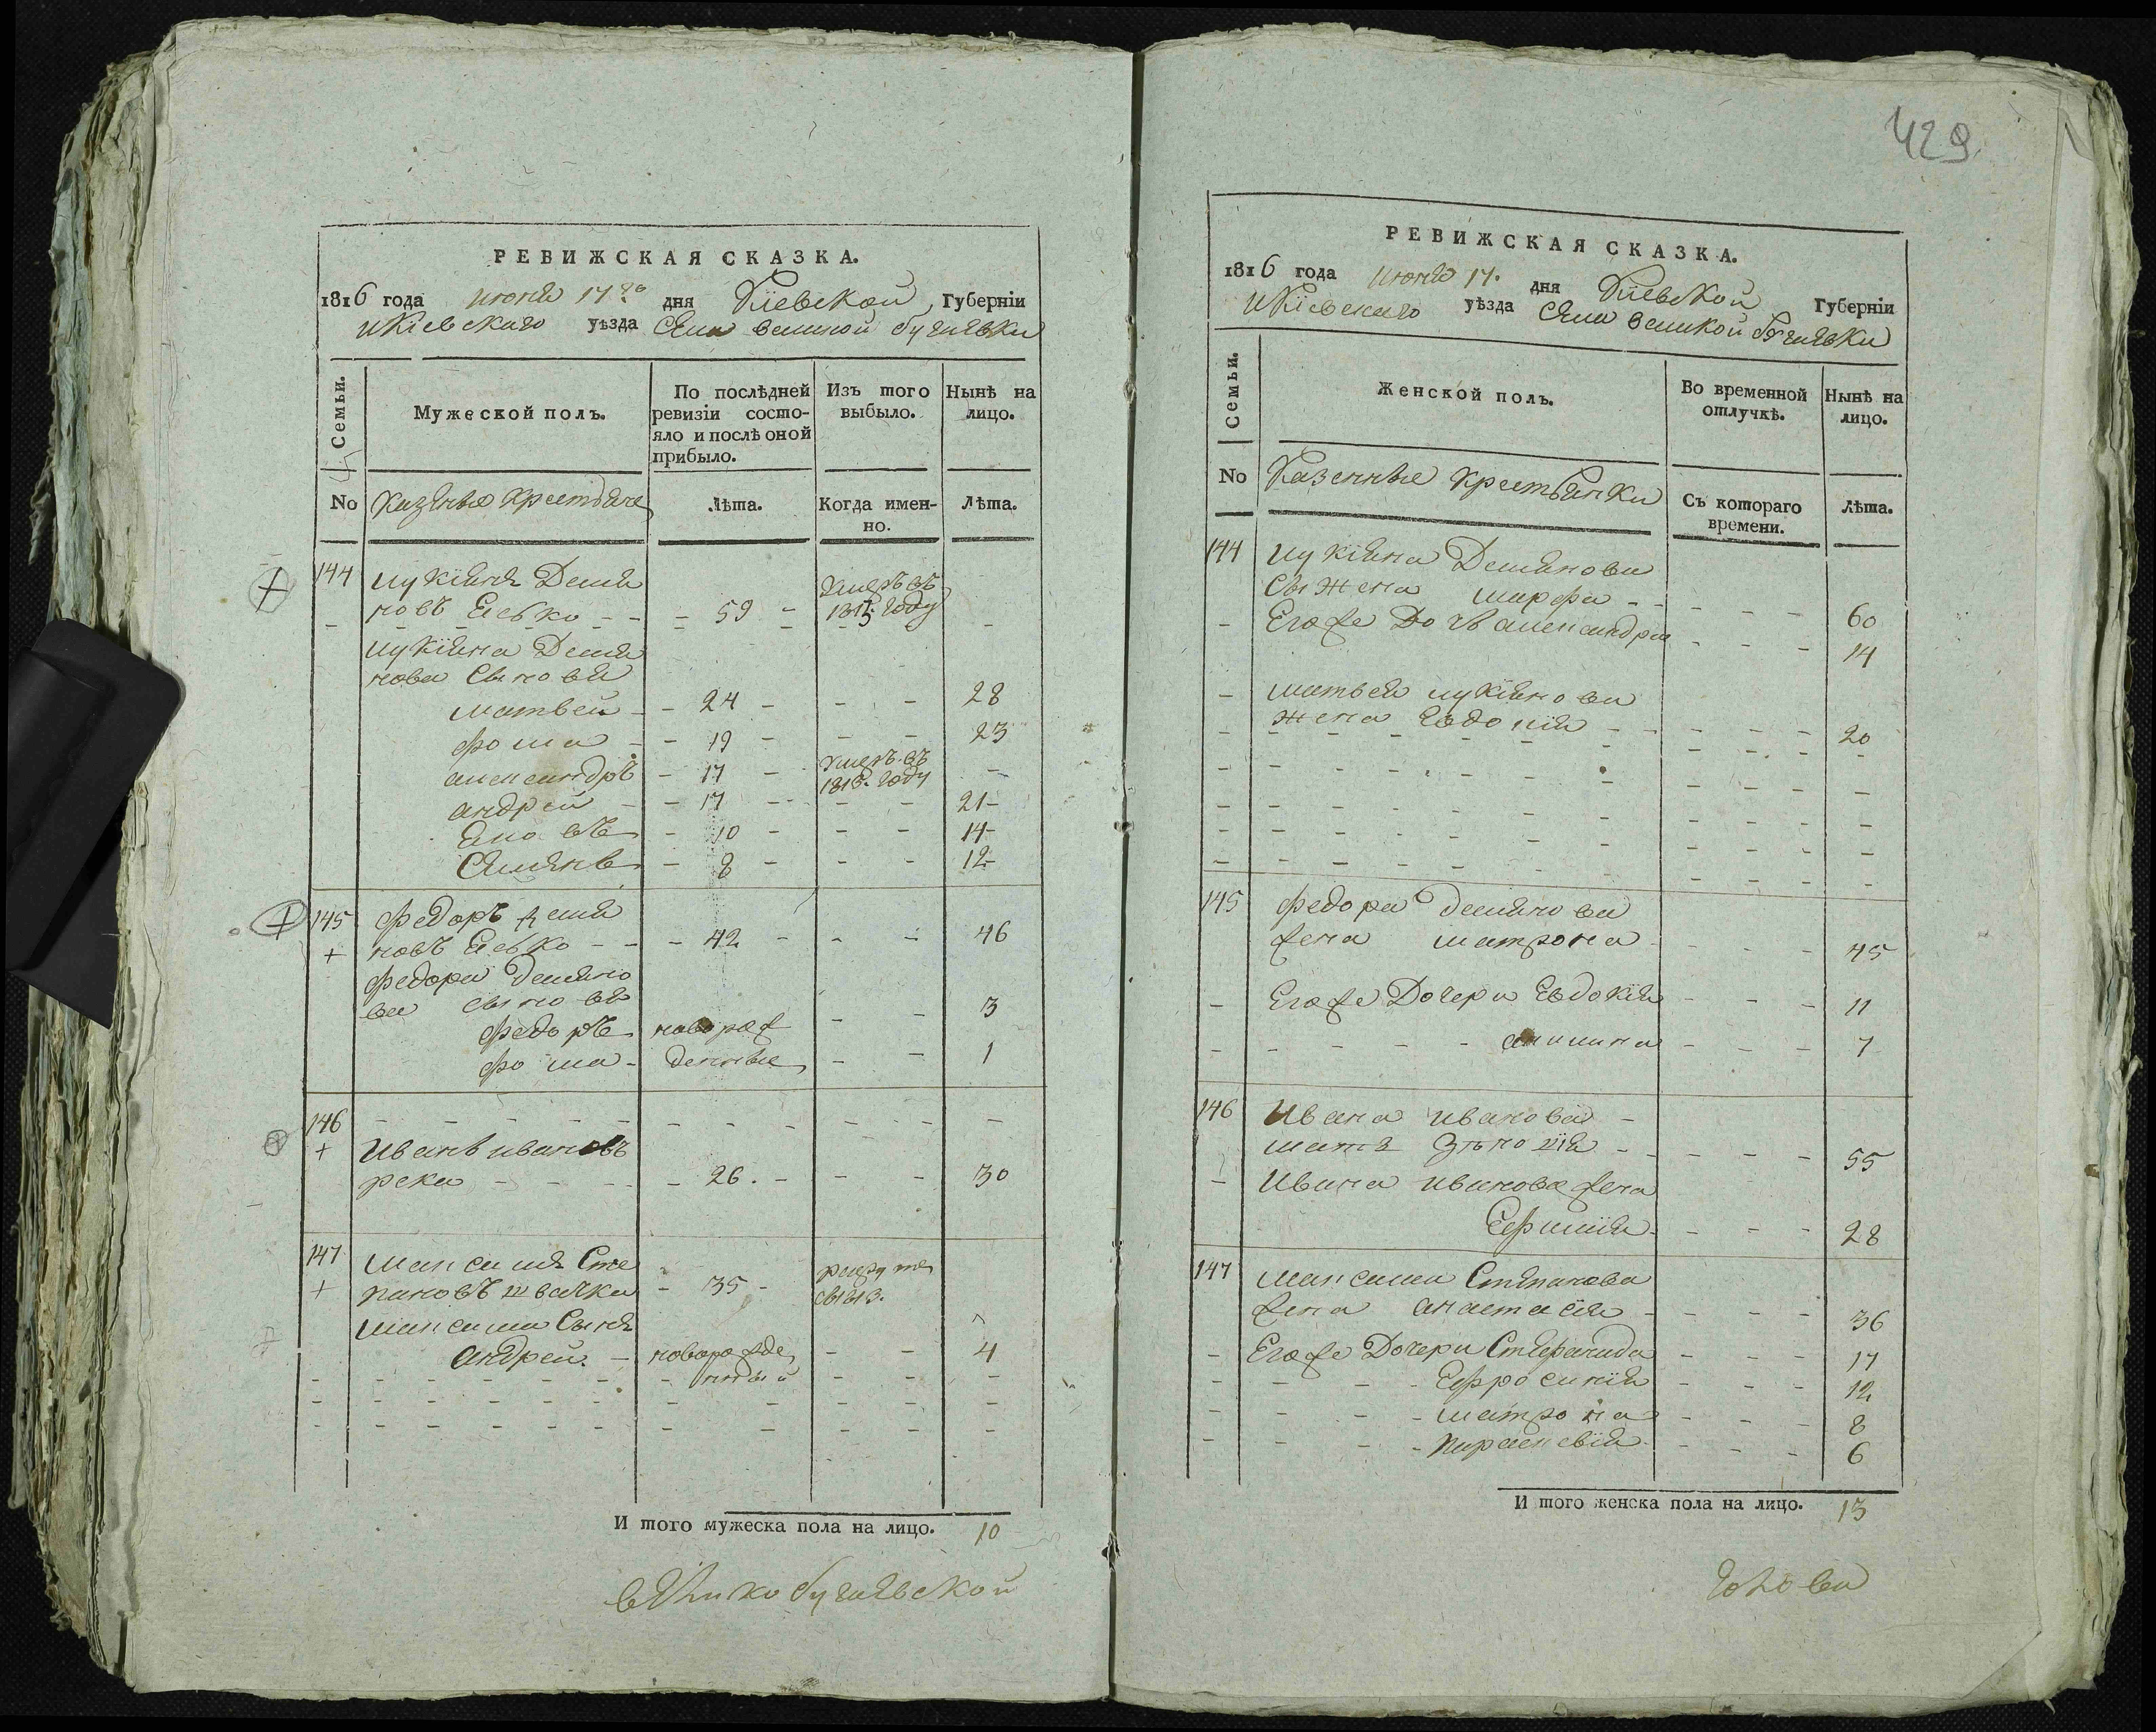 РЕВИЖСКАЯ СКАЗКА.
1816 года июня 17го дня Кіевской Губерніи
и Кіевскаго уѣзда Села великой бугаевки
Семьи.
Мужеской полъ.
По послѣдней ревизіи состо-
яло и послѣ оной
прибыло.
Изъ того выбыло.
Нынѣ на лицо.
No Казенные крестьяне
Лѣта.
Когда имен-
но.
Лѣта.
144 лукіянъ Демя
новъ Есько - - 59 - умеръ въ 1815. году
лукіяна Демя
нова Сыновья
матвей - 24 - - - 28
фома - 19 - - - 23
александръ - 17 - умеръ въ 1813. году -
андрей - 17 - - - 21
Яковъ - 10 - - - 14
Семенъ - 8 - - - 12
145 федоръ демя
новъ Есько - - 42 - - - 46
федора демяно
ва сыновья
федоръ новорож - - 3
фома - денные - - 1
146
Иванъ ивановъ
река - - 26. - - - 30
147 максимъ Сте
пановъ швачка - 35 - рекрутъ с 1813.
максима Сынъ
андрей. - новорожде - - 4
нный
И того мужеска пола на лицо. 10
великобугаевской
429
РЕВИЖСКАЯ СКАЗКА.
1816 года июня 17. дня Кіевской Губерніи
и Кіевскаго уѣзда Села великой бугаевки
Семьи.
Женской полъ.
Во временной отлучкѣ.
Нынѣ на лицо.
No Казенные крестьянки
Съ котораго времени.
Лѣта.
144 лукіяна Демянова
жена марфа - - 60
Его же дочь александра - - - 14
матвея лукіянова
жена Евдокія - - 20
145 федора демянова
жена матрона - - - 45
Его же Дочери Евдокія - - - 11
акилина - - - 7
146 Ивана иванова -
мать Зѣновія - - 55
Ивана иванова жена
Ефимія - - - 28
147 максима Степанова
жена анастасія - - 36
Его же Дочери Стефанида - - - 17
Ефросинія - - - 12
матрона - - - 8
параскевія - - - 6
И того женска пола на лицо. 13
голова